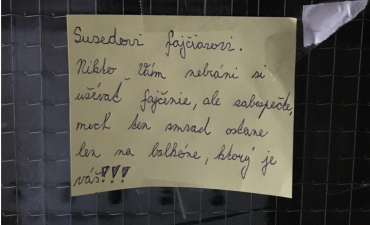 Susedovi fajčiarovi.
Nikto Vám nebráni si
užívať fajčenie, ale zabezpečte,
nech ten smrad ostane
len na balkóne, ktorý je
váš!!!